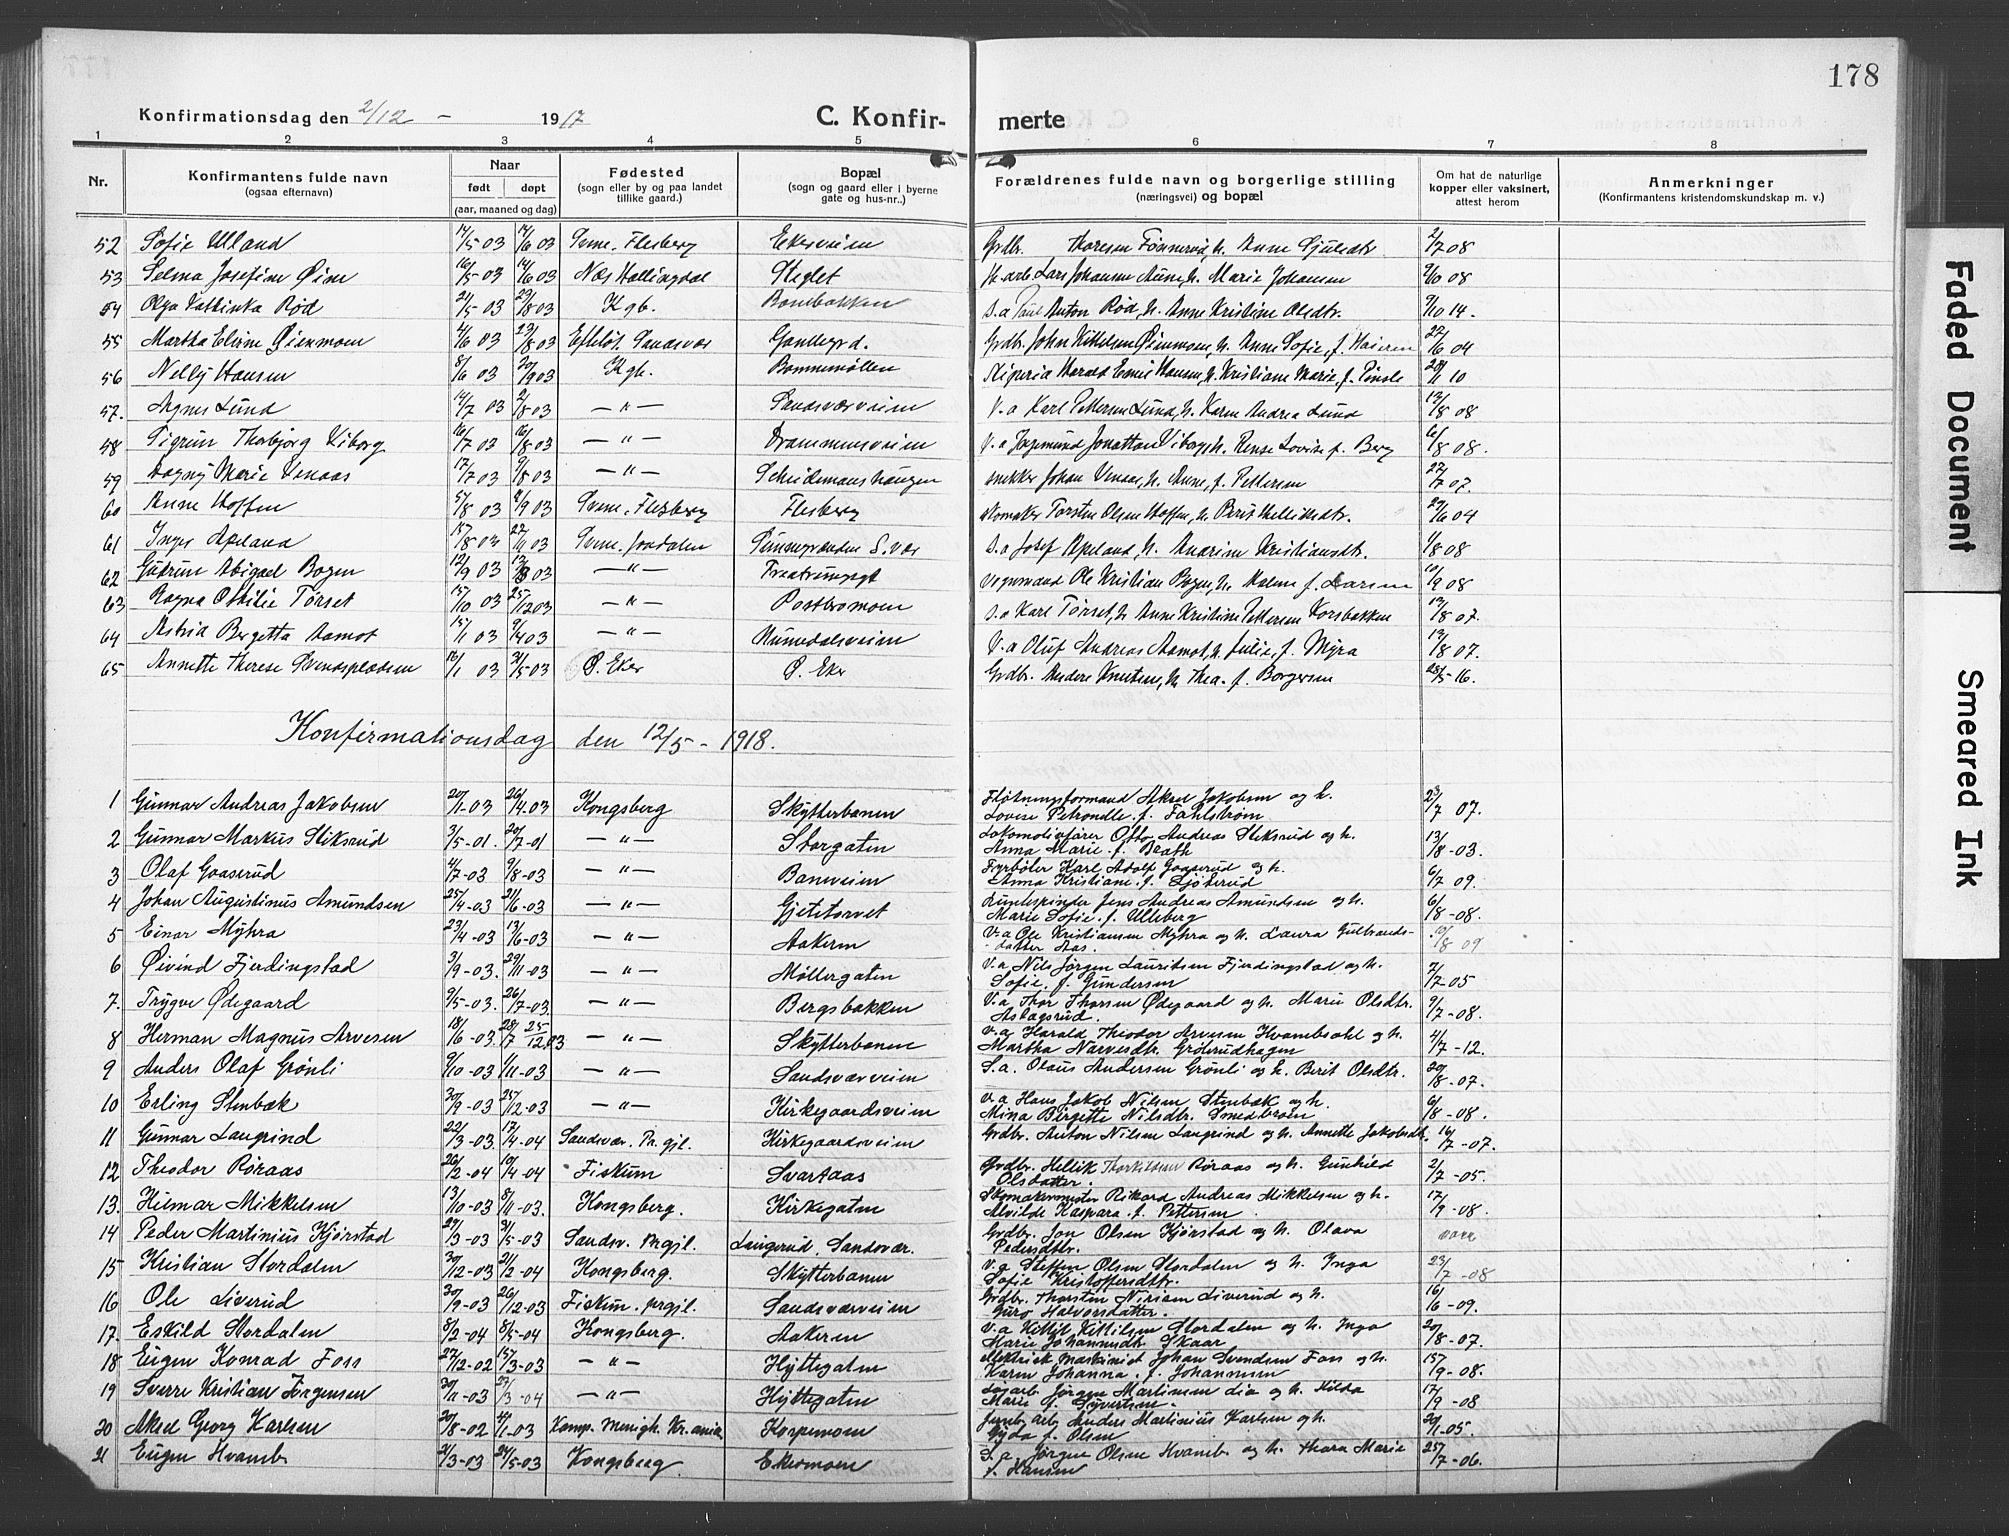 178
Konfirmationsdag den 2/12 - 1917 C. Konfir- merte
1 2 3 4 5 6 7 8
Nr. Konfirmantens fulde navn (ogsaa efternavn) Naar født døpt (aar, maaned og dag) Fødested (sogn eller by og paa landet tillike gaard.) Bopæl (sogn og gaard eller i byerne gate og hus-nr..) Forældrenes fulde navn og borgerlige stilling (næringsvei) og bopæl Om hat de naturlige kopper eller vaksinert, attest herom Anmerkninger (Konfirmantens kristendomskundskap m. v.)
52 Sofie Ulland 14/5 03 14/6 03 Svene, Flesberg Ekersveien Grdbr. Thoresen Tønnervid, h. Anne Gjulsdtr 2/7 08
53 Selma Josefine Øien 16/5 03 14/6 03 Næs Hallingdal Steglet Lars Johansen h. Marie Johansen 9/10 08
54 Olga Rød 21/5 03 23/8 03 Kgb. Bombakken S.a Anton Rød, h. Anne Kristine Olsdtr. 9/10 14.
55 Martha Elvine Øienmoen 4/6 03 23/8 03 Efteløt, Sandsvær Gamlegrd. Grdbr. John Kittelsen Øienmoen, h. Anne Sofie, f. Haieren 22/6 04
56 Nelly Hansen 8/6 03 20/9 03 Kgb. Bommemøllen Harald Emil Hansen, h. Kristiane Marie, f. 28/11 10
57. Agnes Lund 14/7 03 2/8 03 — " — Sandsværveien V.a Karl Pettersen Lund, h. Karen Andrea Lund 13/8 08
58 Sigrun Thorbjørg Viborg 16/7 03 16/8 03 — " — Drammensveien V.a Jonathan Viborg, h. Lovise f. Berg 6/8 08.
59 Dagny Marie Venaas 17/7 03 9/8 03 — " — Scheidemanshaugen snekker Johan Venaas, h. Anne, f. Pettersen 22/7 07.
60 Anne Hoffen 5/8 03 9/03 Svene, Flesberg Flesberg skomaker Torsten Olsen Hoffen, h. Berit Helliksdtr. 29/6 04
61 Inger Apeland 15/8 03 22/11 03 Svene, Jondalen S.vær S.a Josef Apeland, h. Andrine Kristiansdtr. 1/8 08
62 Gudrun Abigael Bogen 12/9 03 03 — " — Ole Kristian Bogen, h. f. Larsen 10/9 08
63 Ragna Ottilie Tørset 15/10 03 25/12 03 — " — Postbromoen S.a Karl Tørset, h. Anne Kristine Pettersen Korsbakken 13/8 07.
64 Astrid Bergetta Aamot 15/1 03 9/4 03 — " — Numedalsveien V.a Oluf Andreas Aamot, h. Julie, f. Myra 13/8 07.
65 Annette Therese Svendspladsen 16/1 03 31/5 03 Ø. Eker Ø. Eker Grdbr. Anders Knutsen, h. Thea. f. Borgersen 25/5 16.
Konfirmationsdag den 12/5 - 1918.
1 Gunnar Andreas Jakobsen 20/1-03 26/4.03 Kongsberg Skytterbanen Fløtningsformand Aksel Jakobsen og h.
Lovise Petronelle f. Fahlstrøm 23/7 07.
2 Gunnar Markus Stiksrud 3/5-01. 20/7-01 — " — Storgaten Lokomotivfører Otto Andreas Stiksrud og h.
Anna Marie. f. Brath 13/8-03.
3 Olaf Gaaserud 4/7-03 9/8-03 — " — Baneveien Fyrbøter Karl Adolf Gaaserud og h.
Anna Kristiane. f. Sjøterud 6/7 09.
4 Johan Augustinus Amundsen 25/4-03 21/6-03 — " — Gjetetorvet Jens Andreas Amundsen og h.
Marie Sofie. f. Ulleberg 6/8-08.
5 Einar Myhra 23/4-03 13/6-03 — " — Aakeren V.a Ole Kristiansen Myhra og h. Laura Gulbrands-
datter Aas. 10/8 09
6 Øivind Fjerdingstad 3/9-03. 29/11-03 — " — Møllergaten V.a Nils Jørgen Lauritsen Fjerdingstad og h.
Sofie, f. Gundersen 7/7-05
7. Trygve Ødegaard 9/5-03. 26/7-03. — " — Bergsbakken V.a Thor Thorsen Ødegaard og h. Marie Olsdtr.
Aslagsrud. 9/7-08.
8 Herman Magnus Arvesen 18/6-03. 28/7 25/12.03 — " — Skytterbanen V.a Harald Theodor Arvesen Hvambsahl og h.
Martha Narvesdtr. Grøterudhagen 4/7-12.
9 Anders Olaf Grønli 9/10-03 1/11-03 — " — Sandsværveien S.a. Olaus Andersen Grønli og h. Berit Olsdtr. 20/8-07.
10 Erling Stenbæk 30/9-03 25/12-03 — " — Kirkegaardsveien V.a Hans Jakob Nilsen Stenbæk og h.
Mina Birgette Nilsdtr. Smedbroen 6/8-08.
11 Gunnar Laugrind 22/3-03 17/4-04 Sandsvær. Pr.gjl. Kirkegaardsveien Grdbr. Anton Nilsen Laugrind og h. Annette Jakobsdt. 16/7-07.
12 Theodor Røraas 26/2-04 10/4-04 Fiskum Svartaas Grdbr. Hellik Thorkildsen Røraas og h. Gunhild
Olsdatter. 2/7-05.
13. Hilmar Mikkelsen 13/10-03 8/11-03. Kongsberg. Kirkegaten Skomakermester Rikard Andreas Mikkelsen og h.
Alvilde Kaspara. f. Pettersen 17/9-08.
14 Peder Martinius Kjørstad 29/3-03 3/5-03 Sandsv. Prgjl. Laugerud, Sandsvær. Grdbr. Jon Olsen Kjørstad og h. Olava
Pedersdtr. vacc
15 Kristian Stordalen 30/12-03 21/2-04 Kongsberg. Skytterbanen V.a Steffen Olsen Stordalen og h. Inga
Sofie Kristoffersdtr. 23/7-08
16 Ole Liverud 30/9-03 26/12-03 Fiskum. prgjl. Sandsværveien Grdbr. Thorsten Nirisen Liverud og h.
Guro Halvorsdatter. 16/16-09.
17. Eskild Stordalen 8/2-04 8/5-04 Kongsberg. Aakeren V.a Kittil Kittilsen Stordalen og h. Inga
Marie Johannesdtr. Skaar 20/8-07.
18 Eugen Konrad Foss 27/12-02 15/3-03 — " — Hyttegaten elektrisk maskinist Johan Svendsen Foss og h.
Karen Johanna. f. Johannesen 15/9-08.
19 Sverre Kristian Jørgensen 30/11-03 27/3-04 — " — Hyttegaten Jørgen Martinsen Lia og h. Hilda
Marie f. Syvertsen. 17/9-08
20 Aksel Georg Karlsen 20/8-02 4/1-03 Kamp. Menigh. Kr.ania Korpemoen Jernb.arb Anders Martinius Karlsen og h.
Gyda f. Olsen 20/1-05.
21 Eugen Hvamb. 21/3-03 24/5-03 Kongsberg Ekermoen S.a. Jørgen Olsen Hvamb. og h. Thora Marie
f. Hansen 25/7-06.
Faded Document
Smeared Ink